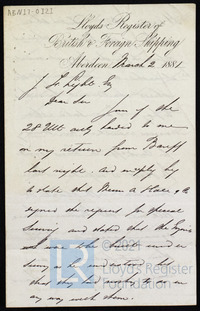 ABN17-0121
Lloyds Register of
British & Foreign Shipping
Aberdeen March 2 1881
J Light Esq
Dear Sir
of the
28 Ult duly handed to me
on my return from Banff
last night. And in reply beg
to state that Hall &
signed the request for Special
Survey and stated that the Engines
and were to be built under
survey
that they had nothing to do in
any way with them.
© 2021
Lloyd's Register
Foundation